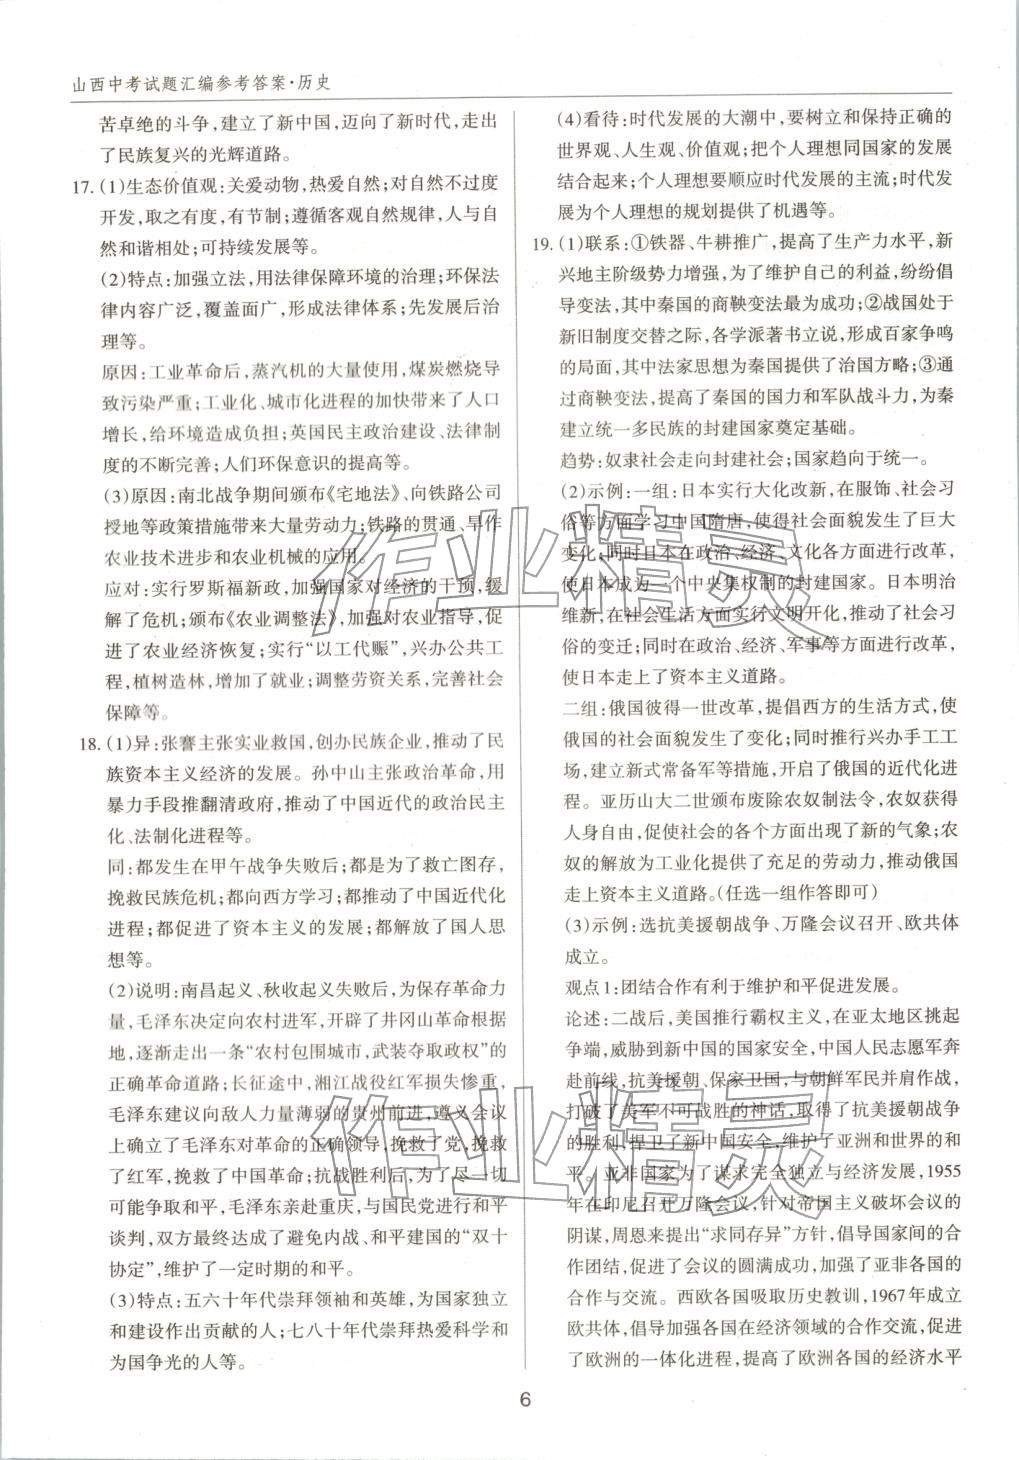 山西中考试题汇编参考答案·历史
苦卓绝的斗争,建立了新中国,迈向了新时代,走出
了民族复兴的光辉道路。
17. (1)生态价值观:关爱动物,热爱自然;对自然不过度
开发,取之有度,有节制;遵循客观自然规律,人与自
然和谐相处;可持续发展等。
(2)特点:加强立法,用法律保障环境的治理;环保法
律内容广泛,覆盖面广,形成法律体系;先发展后治
理等。
原因:工业革命后,蒸汽机的大量使用,煤炭燃烧导
致污染严重;工业化、城市化进程的加快带来了人口
增长,给环境造成负担;英国民主政治建设、法律制
度的不断完善;人们环保意识的提高等。
(3)原因:南北战争期间颁布《宅地法》、向铁路公司
授地等政策措施带来大量劳动力;铁路的贯通、旱作
农业技术进步和农业机械的应用。
应对:实行罗斯福新政,加强国家对经济的干预,缓
解了危机;颁布《农业调整法》,加强农业指导,促
进了农业经济恢复;实行“以工代赈”,兴办公共工
程,植树造林,增加了就业;调整劳资关系,完善社会
保障等。
18. (1)异:张謇主张实业救国,创办民族企业,推动了民
族资本主义经济的发展。孙中山主张政治革命,用
暴力手段推翻清政府,推动了中国近代的政治民主
化、法制化进程等。
同:都发生在甲午战争失败后;都是为了救亡图存,
挽救民族危机;都向西方学习;都推动了中国近代化
进程;都促进了资本主义的发展;都解放了国人思
想等。
(2)说明:南昌起义、秋收起义失败后,为保存革命力
量,毛泽东决定向农村进军,开辟了井冈山革命根据
地,逐渐走出一条“农村包围城市,武装夺取政权”的
正确革命道路;长征途中,湘江战役红军损失惨重,
毛泽东建议向敌人力量薄弱的贵州前进,遵义会议
上确立了毛泽东对革命的正确领导,挽救了党,挽救
了红军,挽救了中国革命;抗战胜利后,为了尽一切
可能争取和平,毛泽东亲赴重庆,与国民党进行和平
谈判,双方最终达成了避免内战、和平建国的“双十
协定”,维护了一定时期的和平。
(3)特点:五六十年代崇拜领袖和英雄,为国家独立
和建设作出贡献的人;七八十年代崇拜热爱科学和
为国争光的人等。
(4)看待:时代发展的大潮中,要树立和保持正确的
世界观、人生观、价值观;把个人理想同国家的发展
结合起来;个人理想要顺应时代发展的主流;时代发
展为个人理想的规划提供了机遇等。
19. (1)联系:①铁器、牛耕推广,提高了生产力水平,新
兴地主阶级势力增强,为了维护自己的利益,纷纷倡
导变法,其中秦国的商鞅变法最为成功;②战国处于
新旧制度交替之际,各学派著书立说,形成百家争鸣
的局面,其中法家思想为秦国提供了治国方略;③通
过商鞅变法,提高了秦国的国力和军队战斗力,为秦
建立统一多民族的封建国家奠定基础。
趋势:奴隶社会走向封建社会;国家趋向于统一。
(2)示例:一组:日本实行大化改新,在服饰、社会习
俗等方面学习中国隋唐,使得社会面貌发生了巨大
变化;同时日本在政治、经济、文化各方面进行改革,
使日本成为一个中央集权制的封建国家。日本明治
维新,在社会生活方面实行文明开化,推动了社会习
俗的变迁;同时在政治、经济、军事等方面进行改革,
使日本走上了资本主义道路。
二组:俄国彼得一世改革,提倡西方的生活方式,使
俄国的社会面貌发生了变化;同时推行兴办手工工
场,建立新式常备军等措施,开启了俄国的近代化进
程。亚历山大二世颁布废除农奴制法令,农奴获得
人身自由,促使社会的各个方面出现了新的气象;农
奴的解放为工业化提供了充足的劳动力,推动俄国
走上资本主义道路。(任选一组作答即可)
(3)示例:选抗美援朝战争、万隆会议召开、欧共体
成立。
观点1:团结合作有利于维护和平促进发展。
论述:二战后,美国推行霸权主义,在亚太地区挑起
争端,威胁到新中国的国家安全,中国人民志愿军奔
赴前线,抗美援朝、保家卫国,与朝鲜军民并肩作战,
打破了美军不可战胜的神话,取得了抗美援朝战争
的胜利,捍卫了新中国安全,维护了亚洲和世界的和
平。亚非国家为了谋求完全独立与经济发展,1955
年在印尼召开万隆会议,针对帝国主义破坏会议的
阴谋,周恩来提出“求同存异”方针,倡导国家间的合
作团结,促进了会议的圆满成功,加强了亚非各国的
合作与交流。西欧各国吸取历史教训,1967年成立
欧共体,倡导加强各国在经济领域的合作交流,促进
了欧洲的一体化进程,提高了欧洲各国的经济水平
作业精灵
作业精灵
6